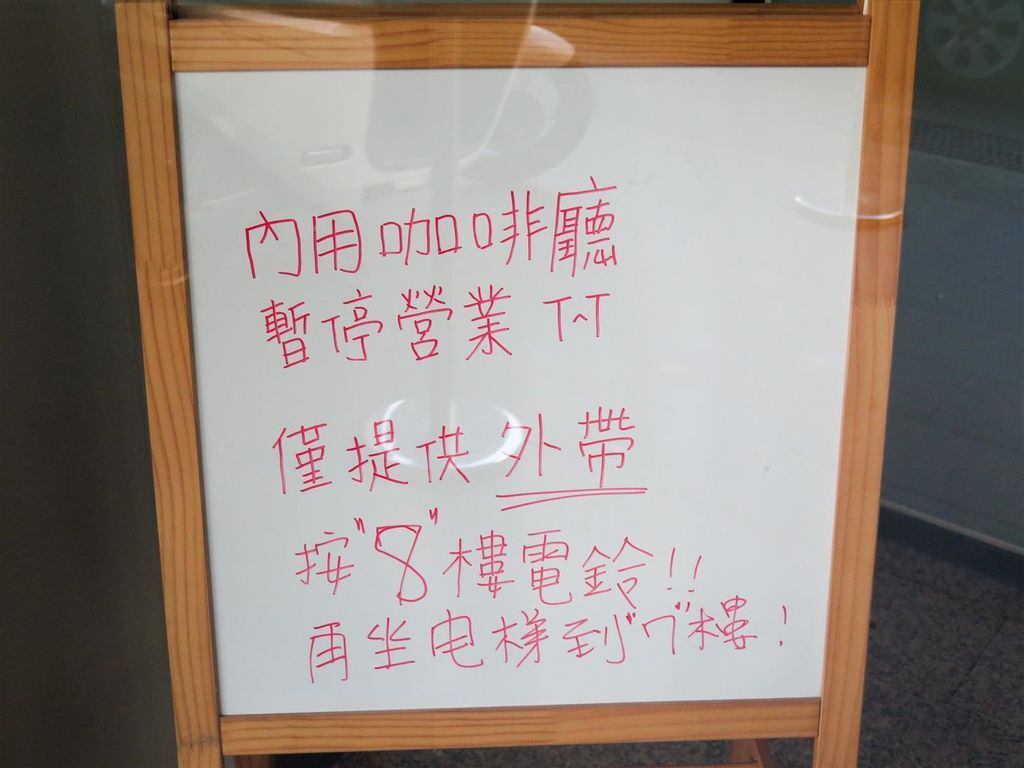 內用咖啡廳
暫停營業 T~T
僅提供外帶
按"8"樓電鈴!!
再坐电梯到"7"樓!